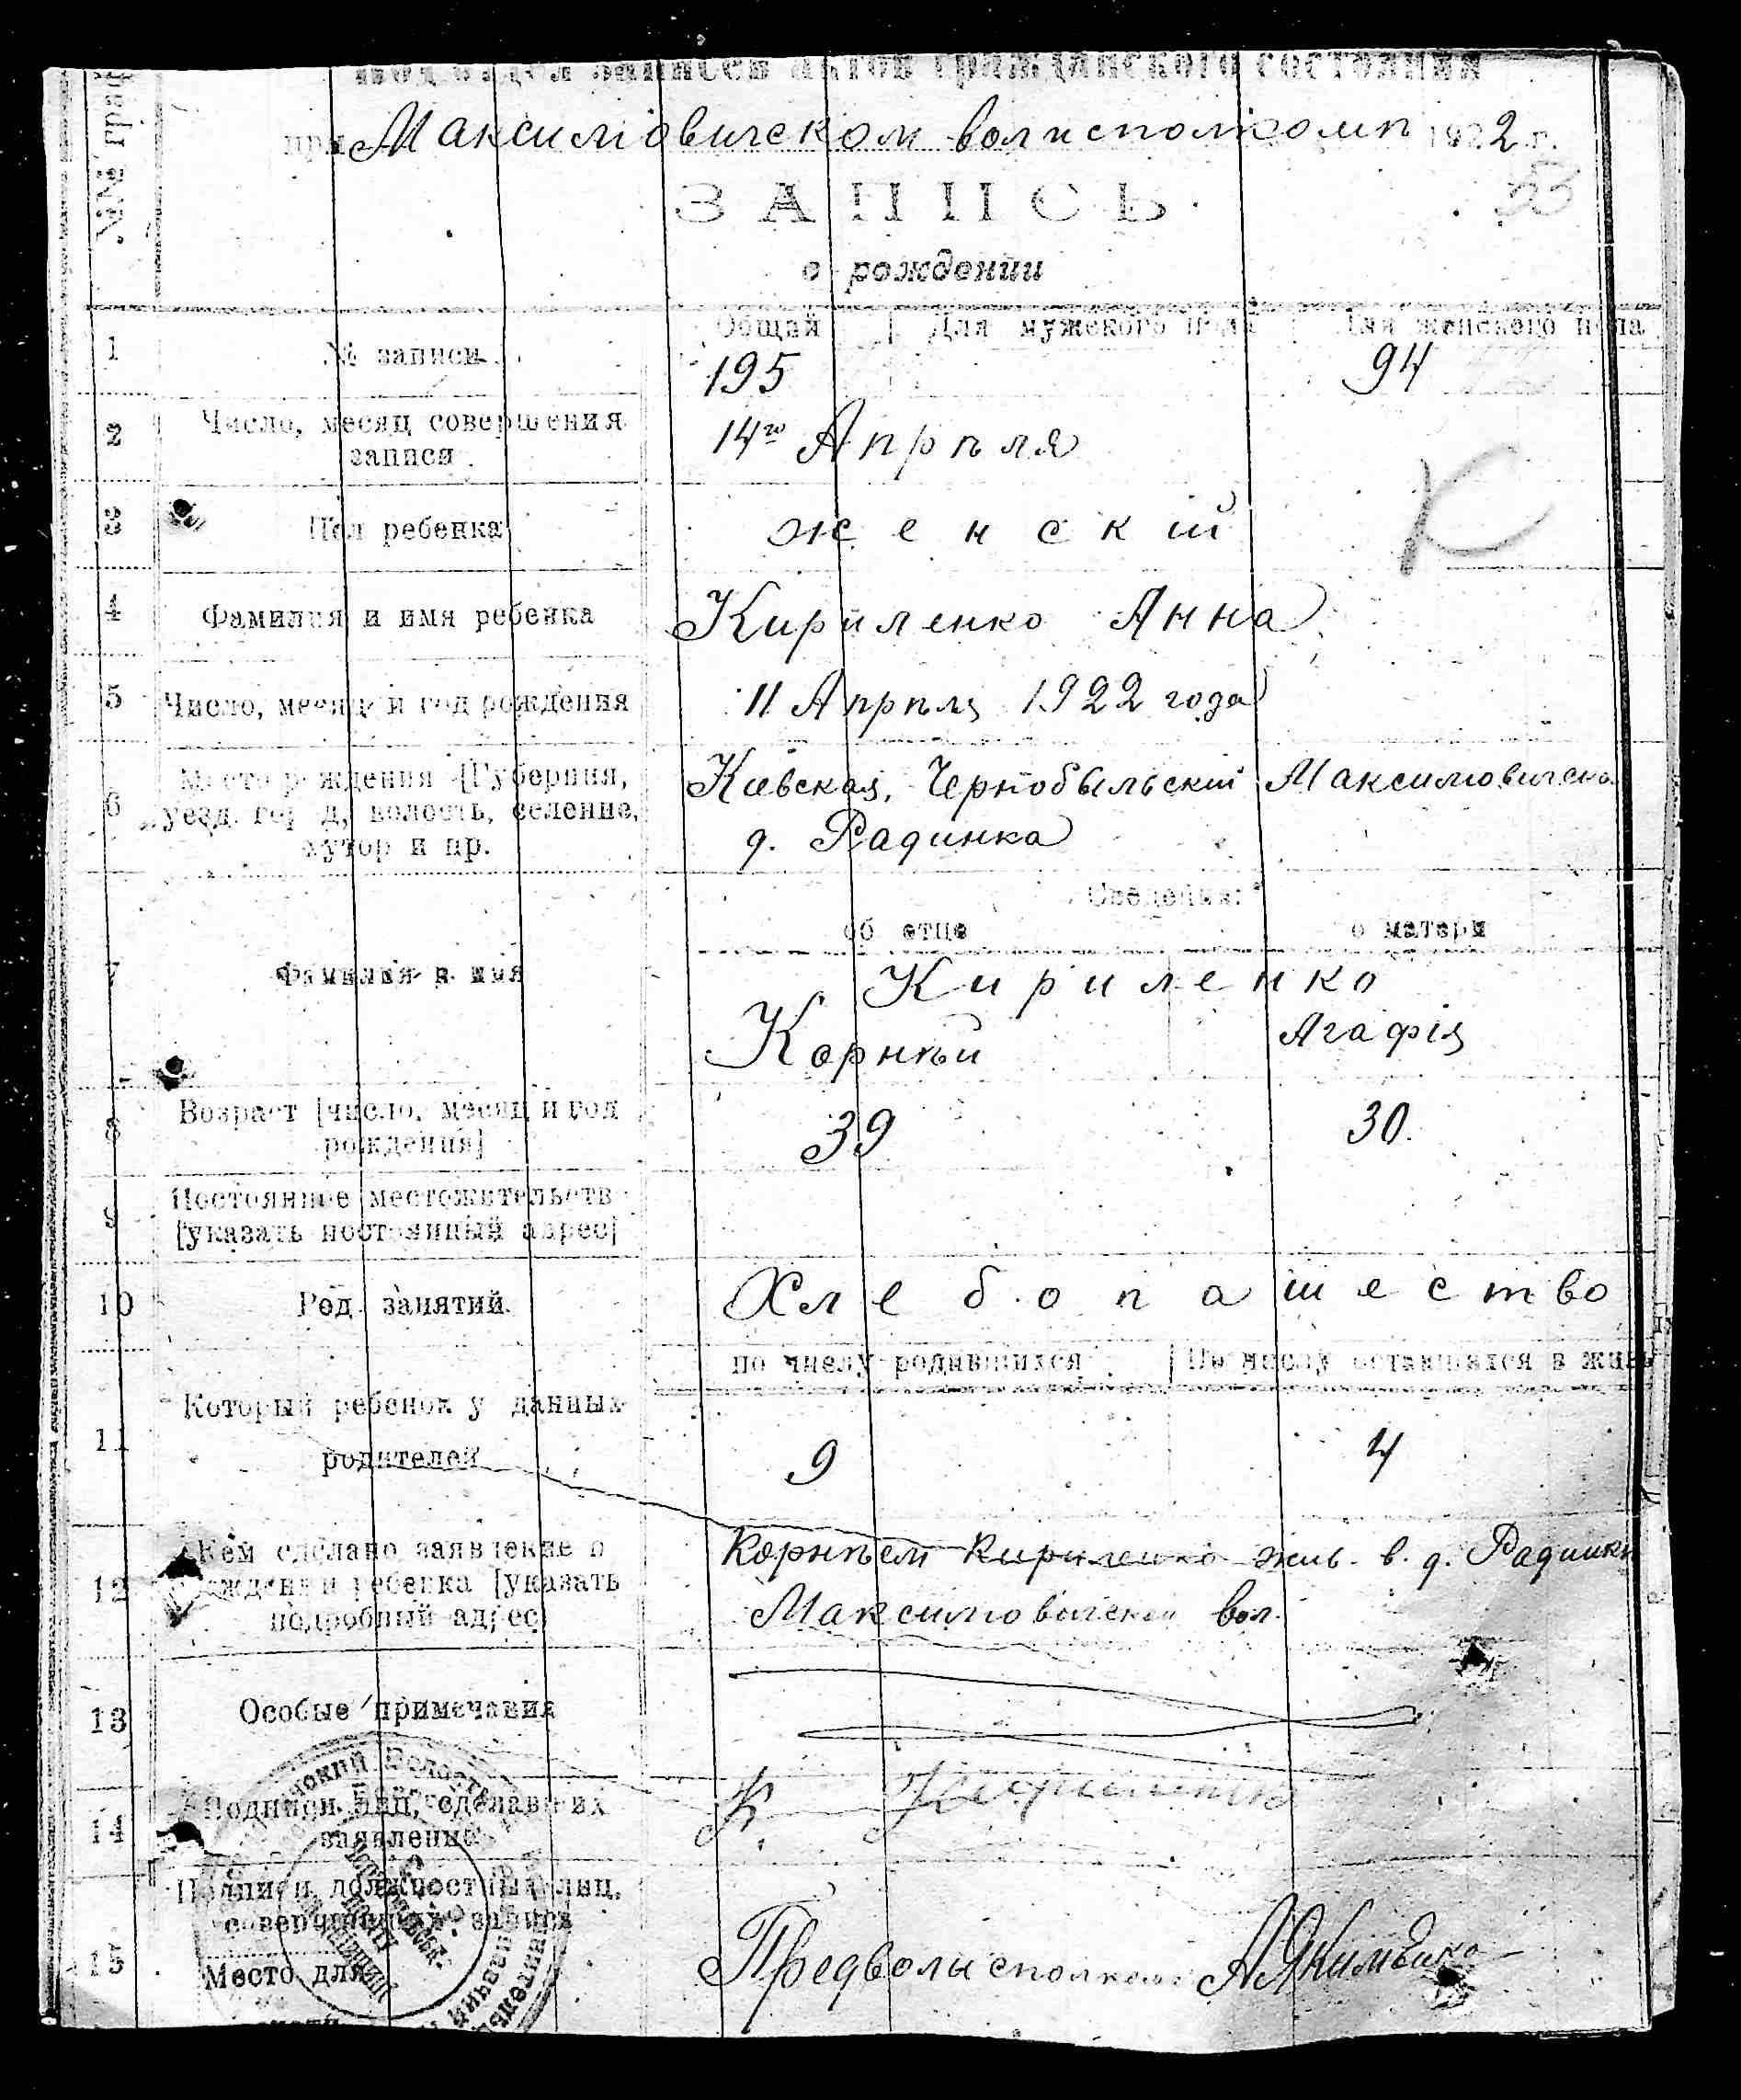 №№ граф
Подотдел записей актов гражданского состояния
при Максимовичском волисполкоми 1922 г.
ЗАПИСЬ
о рождении
Общай Для мужского пола Для женского пола
1 № записи 195 94
2 Число, месяц совершения 14го Апрѣля
записи
3 Пол ребенка женский
К
4 Фамилия и имя ребенка Кириленко Анна
5 Число, месяц и год рождения 11 Апрѣля 1922 года
6 Место рождения [Губерния, Киевская, Чернобыльский Максимовичская
уезд, город, волость, селение, д. Радинка
хутор и пр.
Сведения:
об отце о матери
7 Фамилия и имя Кириленко
Корнѣй Агафія
8 Возраст [число, месяц и год 39 30.
рождения]
9 Постоянное местожительств
[указать постоянный адрес]
10 Род занятий Хлебопашество
по числу родившихся По числу оставшихся в жив
11 Который ребенок у данных
родителей 9 4
12 Кем сделано заявление о Корнѣем Кириленко жит. в. д. Радинки
рождении ребенка [указать Максимовичской вол.
подробный адрес]
13 Особые примечания
14 Подписи лиц, сделавших К. Кириленко
заявление
15 Подписи должностных лиц,
совершивших запись Предволисполком
Место для